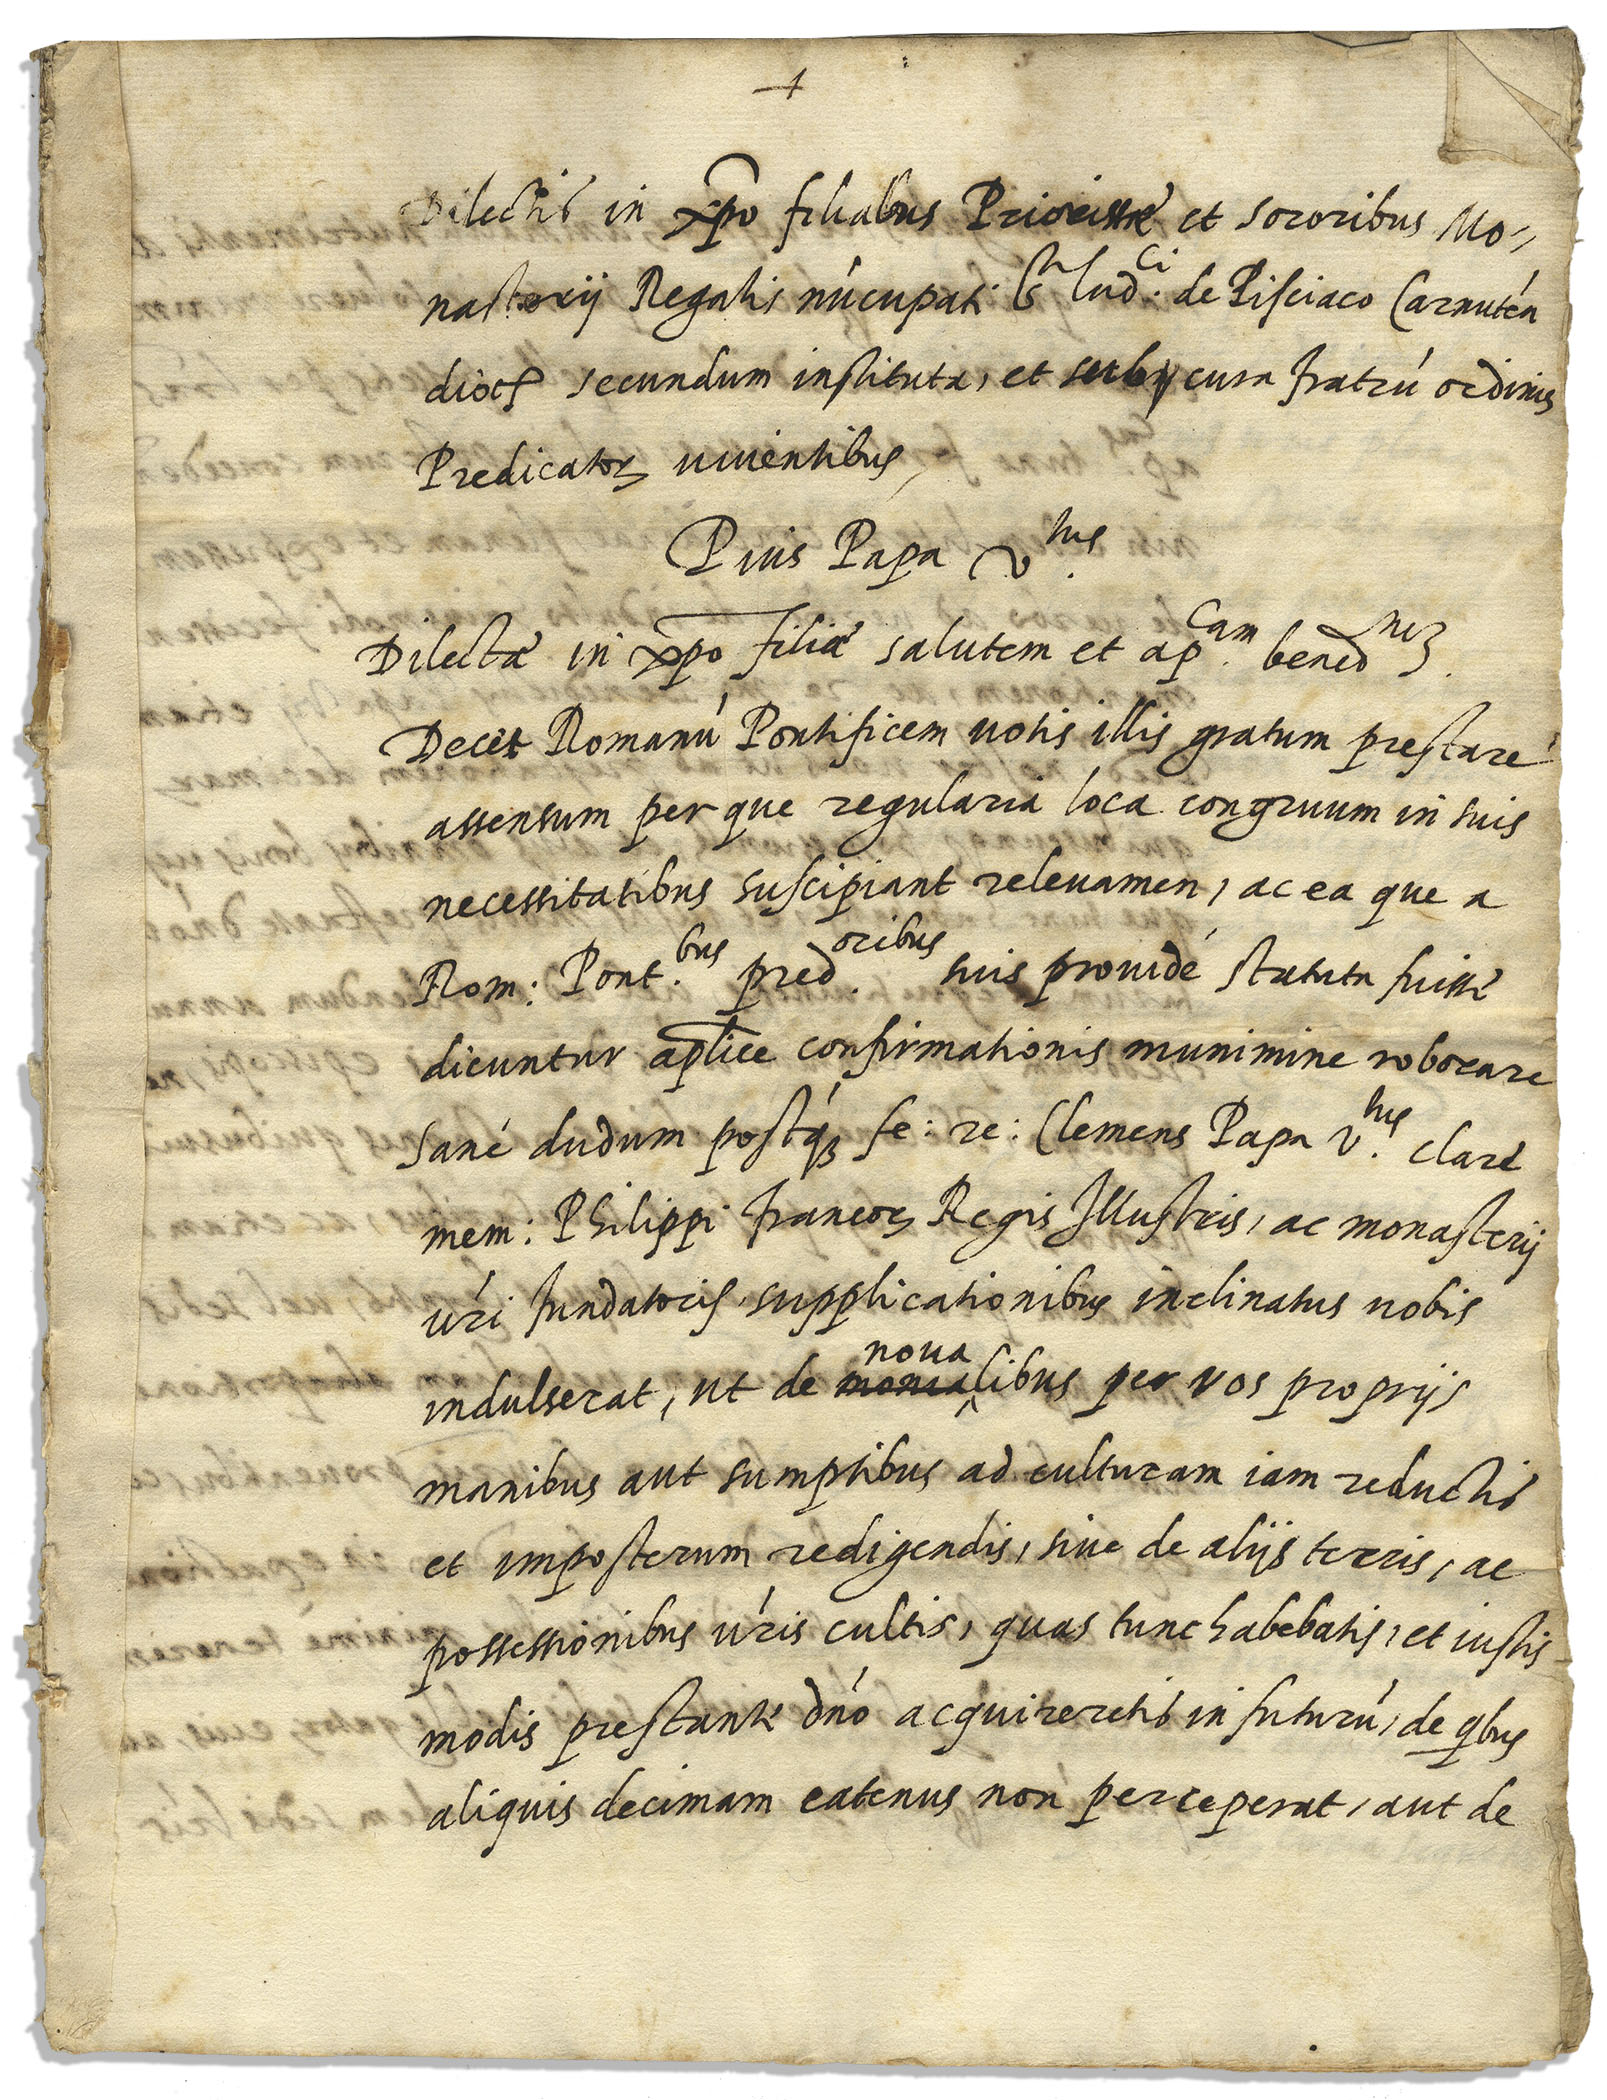 +
Dilectis in xpo filiabus Priorissæ et sororibus Mo-
nasterij Regalis nũcupati Sti Lud.ci de Pisciaco Carnutẽn
dioc̃ secundum instituta, et sub cura fratrũ ordinis
Predicatoꝝ uiuentibus,
Pius Papa V.tus
Dilectæ in xp̄o filiæ salutem et ap.cam bened.nẽ.
Decet Romanũ Pontificem uotis illis gratum prestare
assensum per que regularia loca congruum in suis
necessitatibus suscipiant releuamen, ac ea que a
Rom: Pont.bus pred.oribus suis prouidé statuta fuisse
dicuntur ap̄lice confirmationis munimine roborare
Sané dudum postq̃ fe: re: Clemens Papa V.tus claræ
mem: Philippi francoꝝ Regis Illustris, ac monasterij
ũri fundatoris supplicationibus inclinatus uobis
indulserat, ut de noualibus per vos proprijs
manibus aut sumptibus ad culturam iam reductis
et imposterum redigendis, siue de alijs terris, ac
possessionibus ũris cultis, quas tunc habebatis, et iustis
modis prestante dño acquireretis in futurũ, de qbus
aliquis decimam eatenus non perceperat, aut de